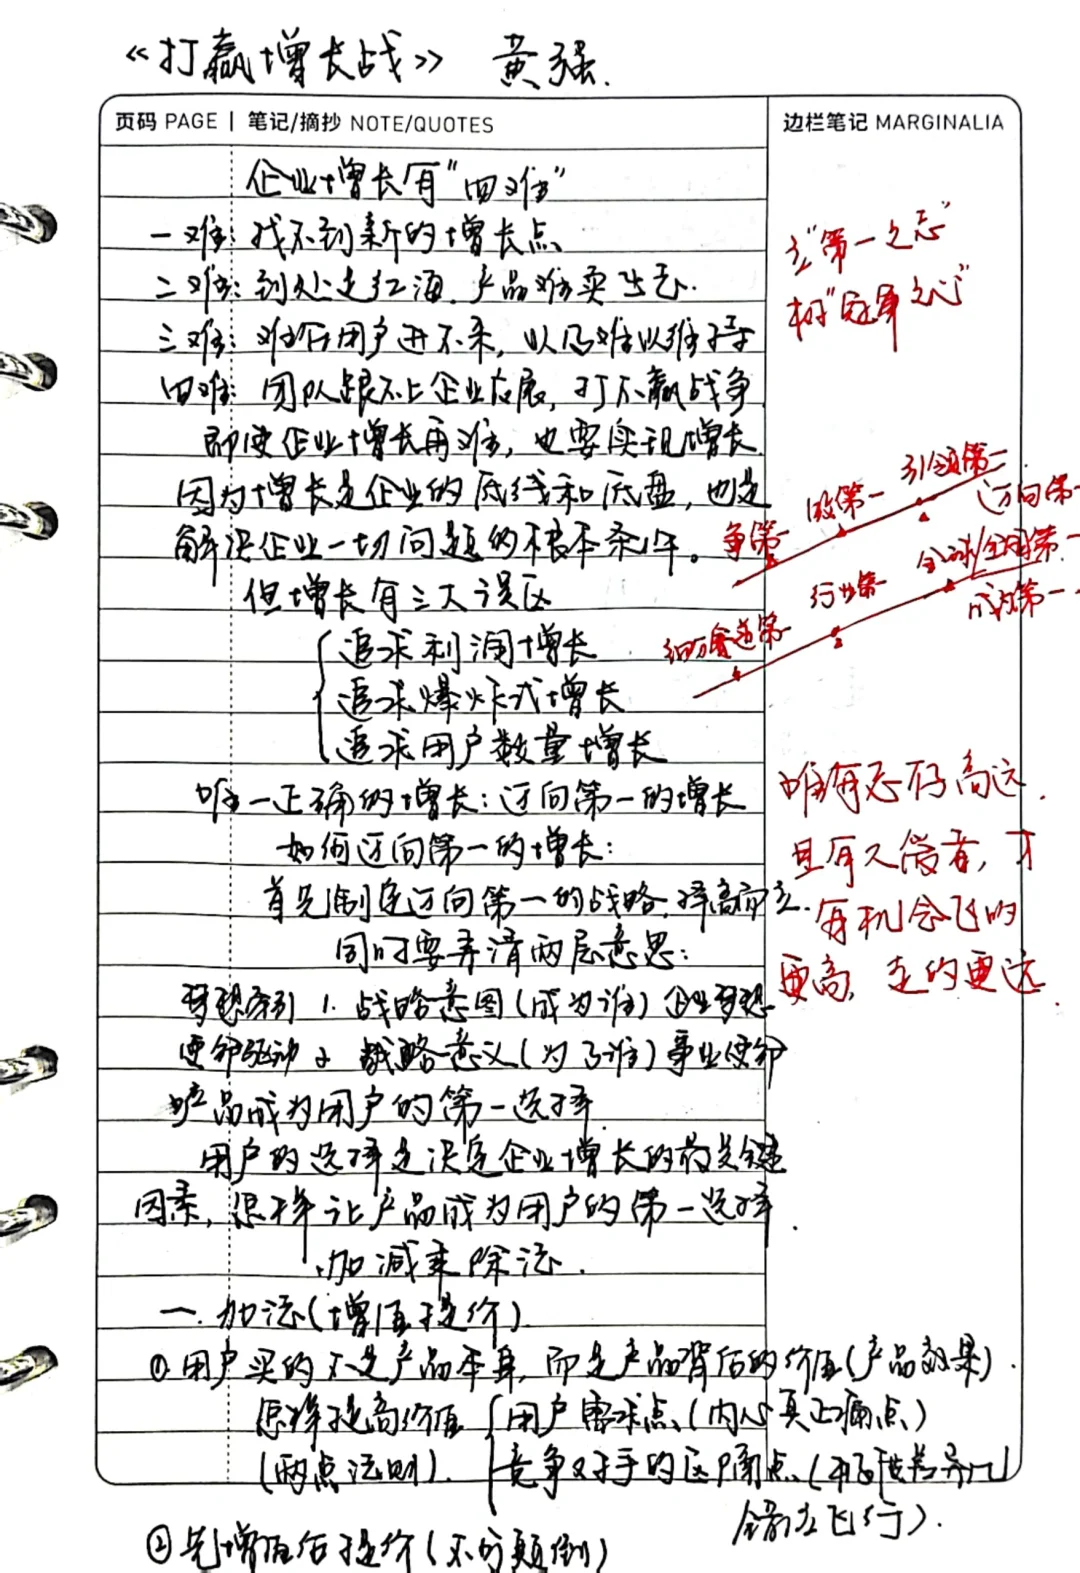 《打赢增长战》 黄强.
页码 PAGE | 笔记/摘抄 NOTE/QUOTES
边栏笔记 MARGINALIA
企业增长有“四难”
一难: 找不到新的增长点
二难: 到处是红海. 产品难卖出去.
三难: 难在用户进不来, 以及难以维持
四难: 团队跟不上企业发展, 打不赢战争
即使企业增长再难, 也要实现增长.
因为增长是企业的底线和底盘, 也是
解决企业一切问题的根本条件。
但增长有三大误区
追求利润增长
追求爆炸式增长
追求用户数量增长
唯一正确的增长: 迈向第一的增长
如何迈向第一的增长:
首先制定迈向第一的战略, 择高而立.
同时要弄清两层意思:
梦想牵引 1. 战略意图 (成为谁) 企业梦想
使命驱动 2 战略意义 (为了谁) 事业使命
产品成为用户的第一选择
用户的选择是决定企业增长的最关键
因素, 怎样让产品成为用户的第一选择.
加减乘除法.
一. 加法 (增值提价)
① 用户买的不是产品本身, 而是产品背后的价值 (产品效果).
怎样提高价值 用户需求点 (内心真正痛点)
(两点法则). 竞争对手的区隔点 (差异化
错位飞行).
② 先增值后提价 (不可颠倒)
立“第一之志”
树“冠军之心”
争第一 做第一 引领第一
迈向第一
细分赛道第一 行业第一 全球/全国第一
成为第一
唯有志存高远.
且有人偕者, 才
有机会飞的
更高, 走的更远.